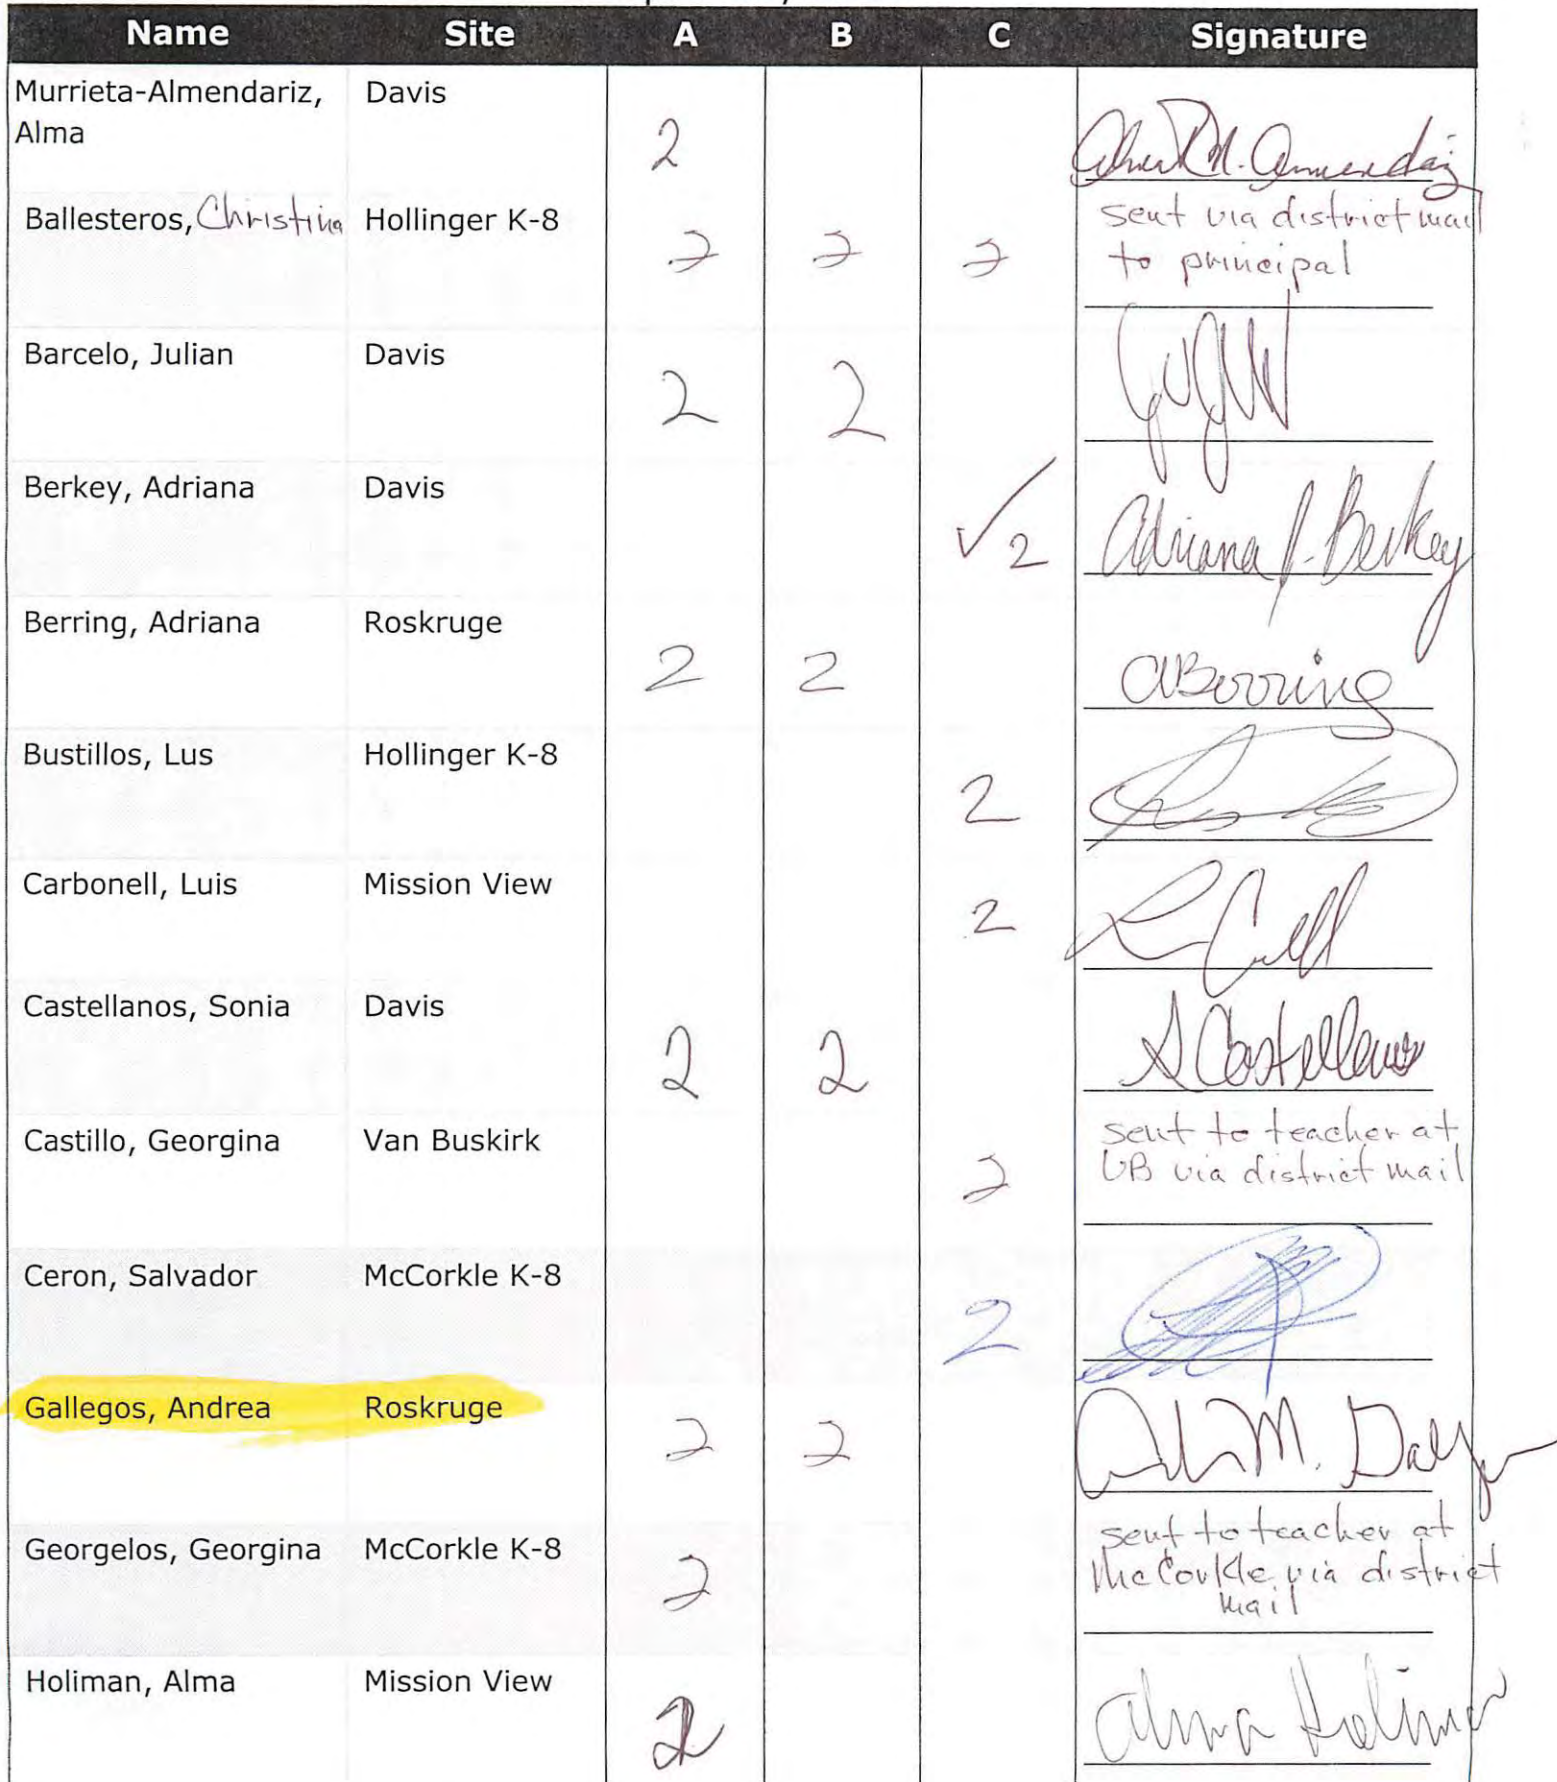 Name Site A B C Signature
Murrieta-Almendariz, Davis
Alma
2
Ballesteros, Christina Hollinger K-8
2 2 2
sent via district mail
to principal
Barcelo, Julian Davis
2 2
Berkey, Adriana Davis
✓ 2 Adriana J. Berkey
Berring, Adriana Roskruge
2 2 ABerring
Bustillos, Lus Hollinger K-8
2
Carbonell, Luis Mission View
2
Castellanos, Sonia Davis
2 2 S Castellanos
Castillo, Georgina Van Buskirk
2
sent to teacher at
VB via district mail
Ceron, Salvador McCorkle K-8
2
Gallegos, Andrea Roskruge
2 2
Georgelos, Georgina McCorkle K-8
2
sent to teacher at
McCorkle via district
mail
Holiman, Alma Mission View
2 Alma Holiman